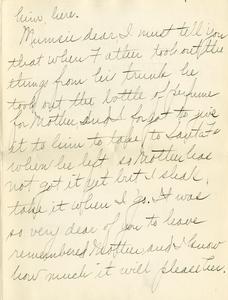 him here.
Mumsie dear, I must tell you
that when Father took out the
things from his trunk he
took out the bottle of perfume
for Mother and I forgot to give
it to him to take to Santa Fe
when he left so Mother has
not got it yet but I shall
take it when I go. It was
so very dear of you to have
remembered Mother, and I know
how much it will please her.